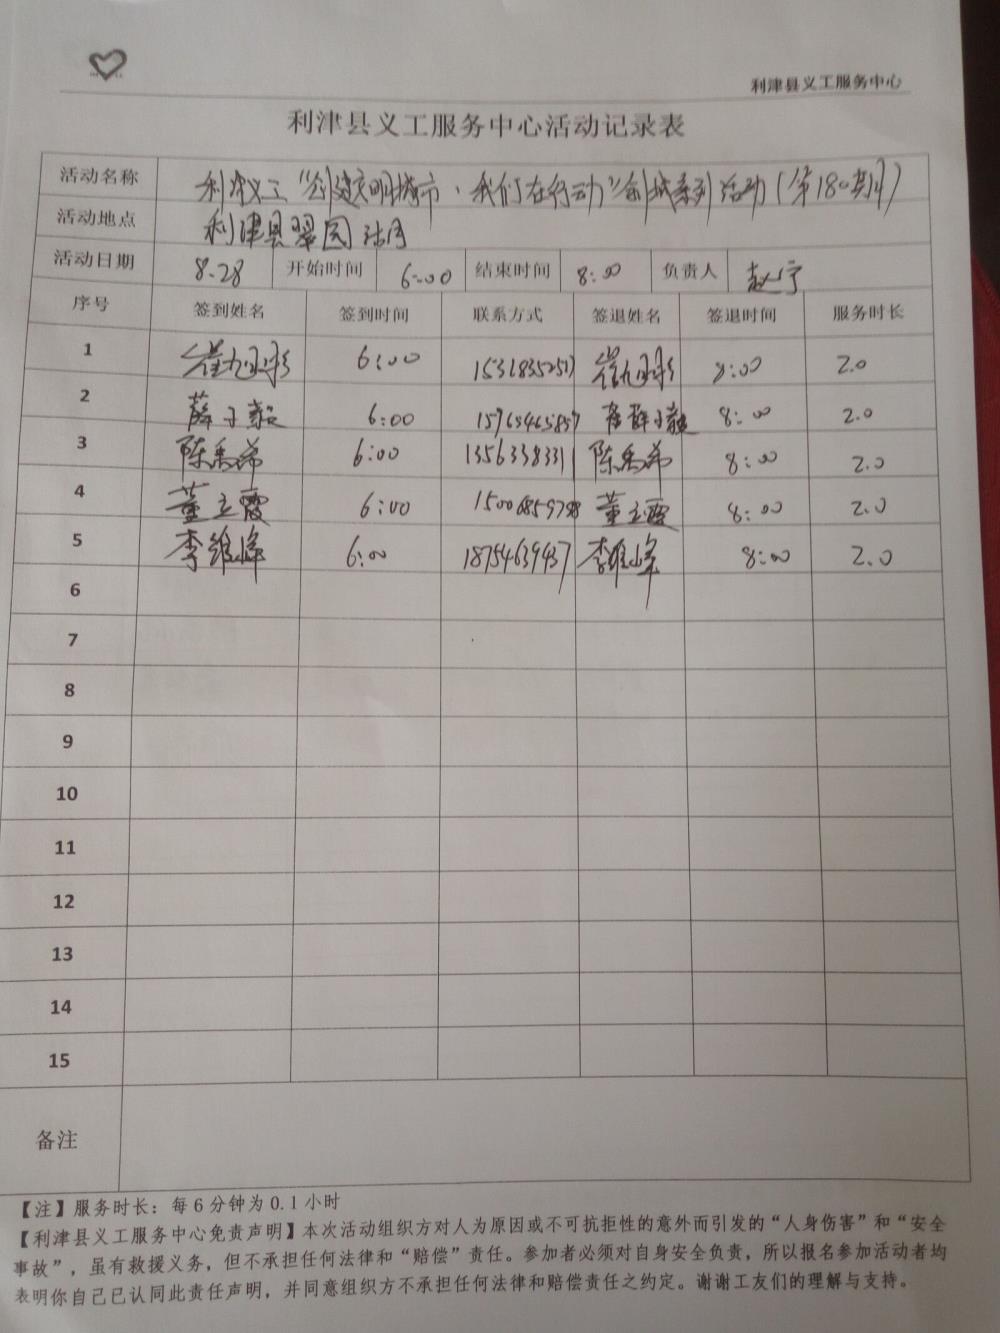 利津县义工服务中心
利津县义工服务中心活动记录表
活动名称 利津义工“创建文明城市、我们在行动”创城系列活动(第180期)
活动地点 利津县翠园 沽周
活动日期 8.28 开始时间 6:00 结束时间 8:00 负责人 赵宁
序号 签到姓名 签到时间 联系方式 签退姓名 签退时间 服务时长
1 崔旭彤 6:00 8:00 2.0
2 薛子毅 6:00 15965465857 薛子毅 8:00 2.0
3 陈秀希 6:00 13563383311 陈秀希 8:00 2.0
4 董立霞 6:00 董立霞 8:00 2.0
5 李维峰 6:00 18754639437 李维峰 8:00 2.0
6
7
8
9
10
11
12
13
14
15
备注
【注】服务时长：每6分钟为0.1小时
【利津县义工服务中心免责声明】本次活动组织方对人为原因或不可抗拒性的意外而引发的“人身伤害”和“安全
事故”，虽有救援义务，但不承担任何法律和“赔偿”责任。参加者必须对自身安全负责，所以报名参加活动者均
表明你自己已认同此责任声明，并同意组织方不承担任何法律和赔偿责任之约定。谢谢工友们的理解与支持。